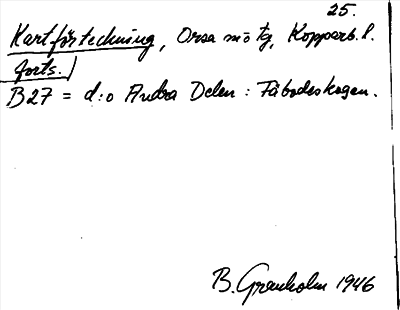 25.
Kartförteckning, Orsa mö tg, Kopparb. l.
forts.
B27 = d:o Andra Delen : Fäbodskogen.
B. Granholm 1946